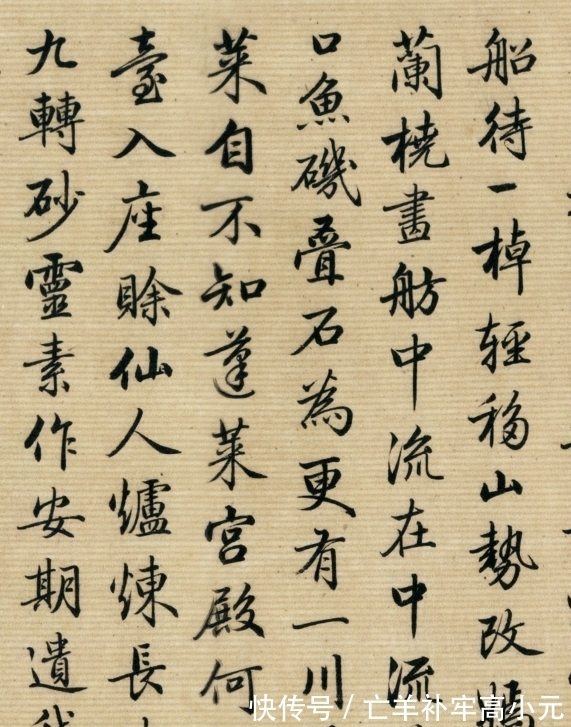 船待一棹輕移山勢改
蘭橈畫舫中流在中流
口魚磯疊石為更有一川
菜自不知蓬萊宮殿何
臺入座賒仙人爐煉長
九轉砂靈素作安期遺
快传号 / 亡羊补牢高小元